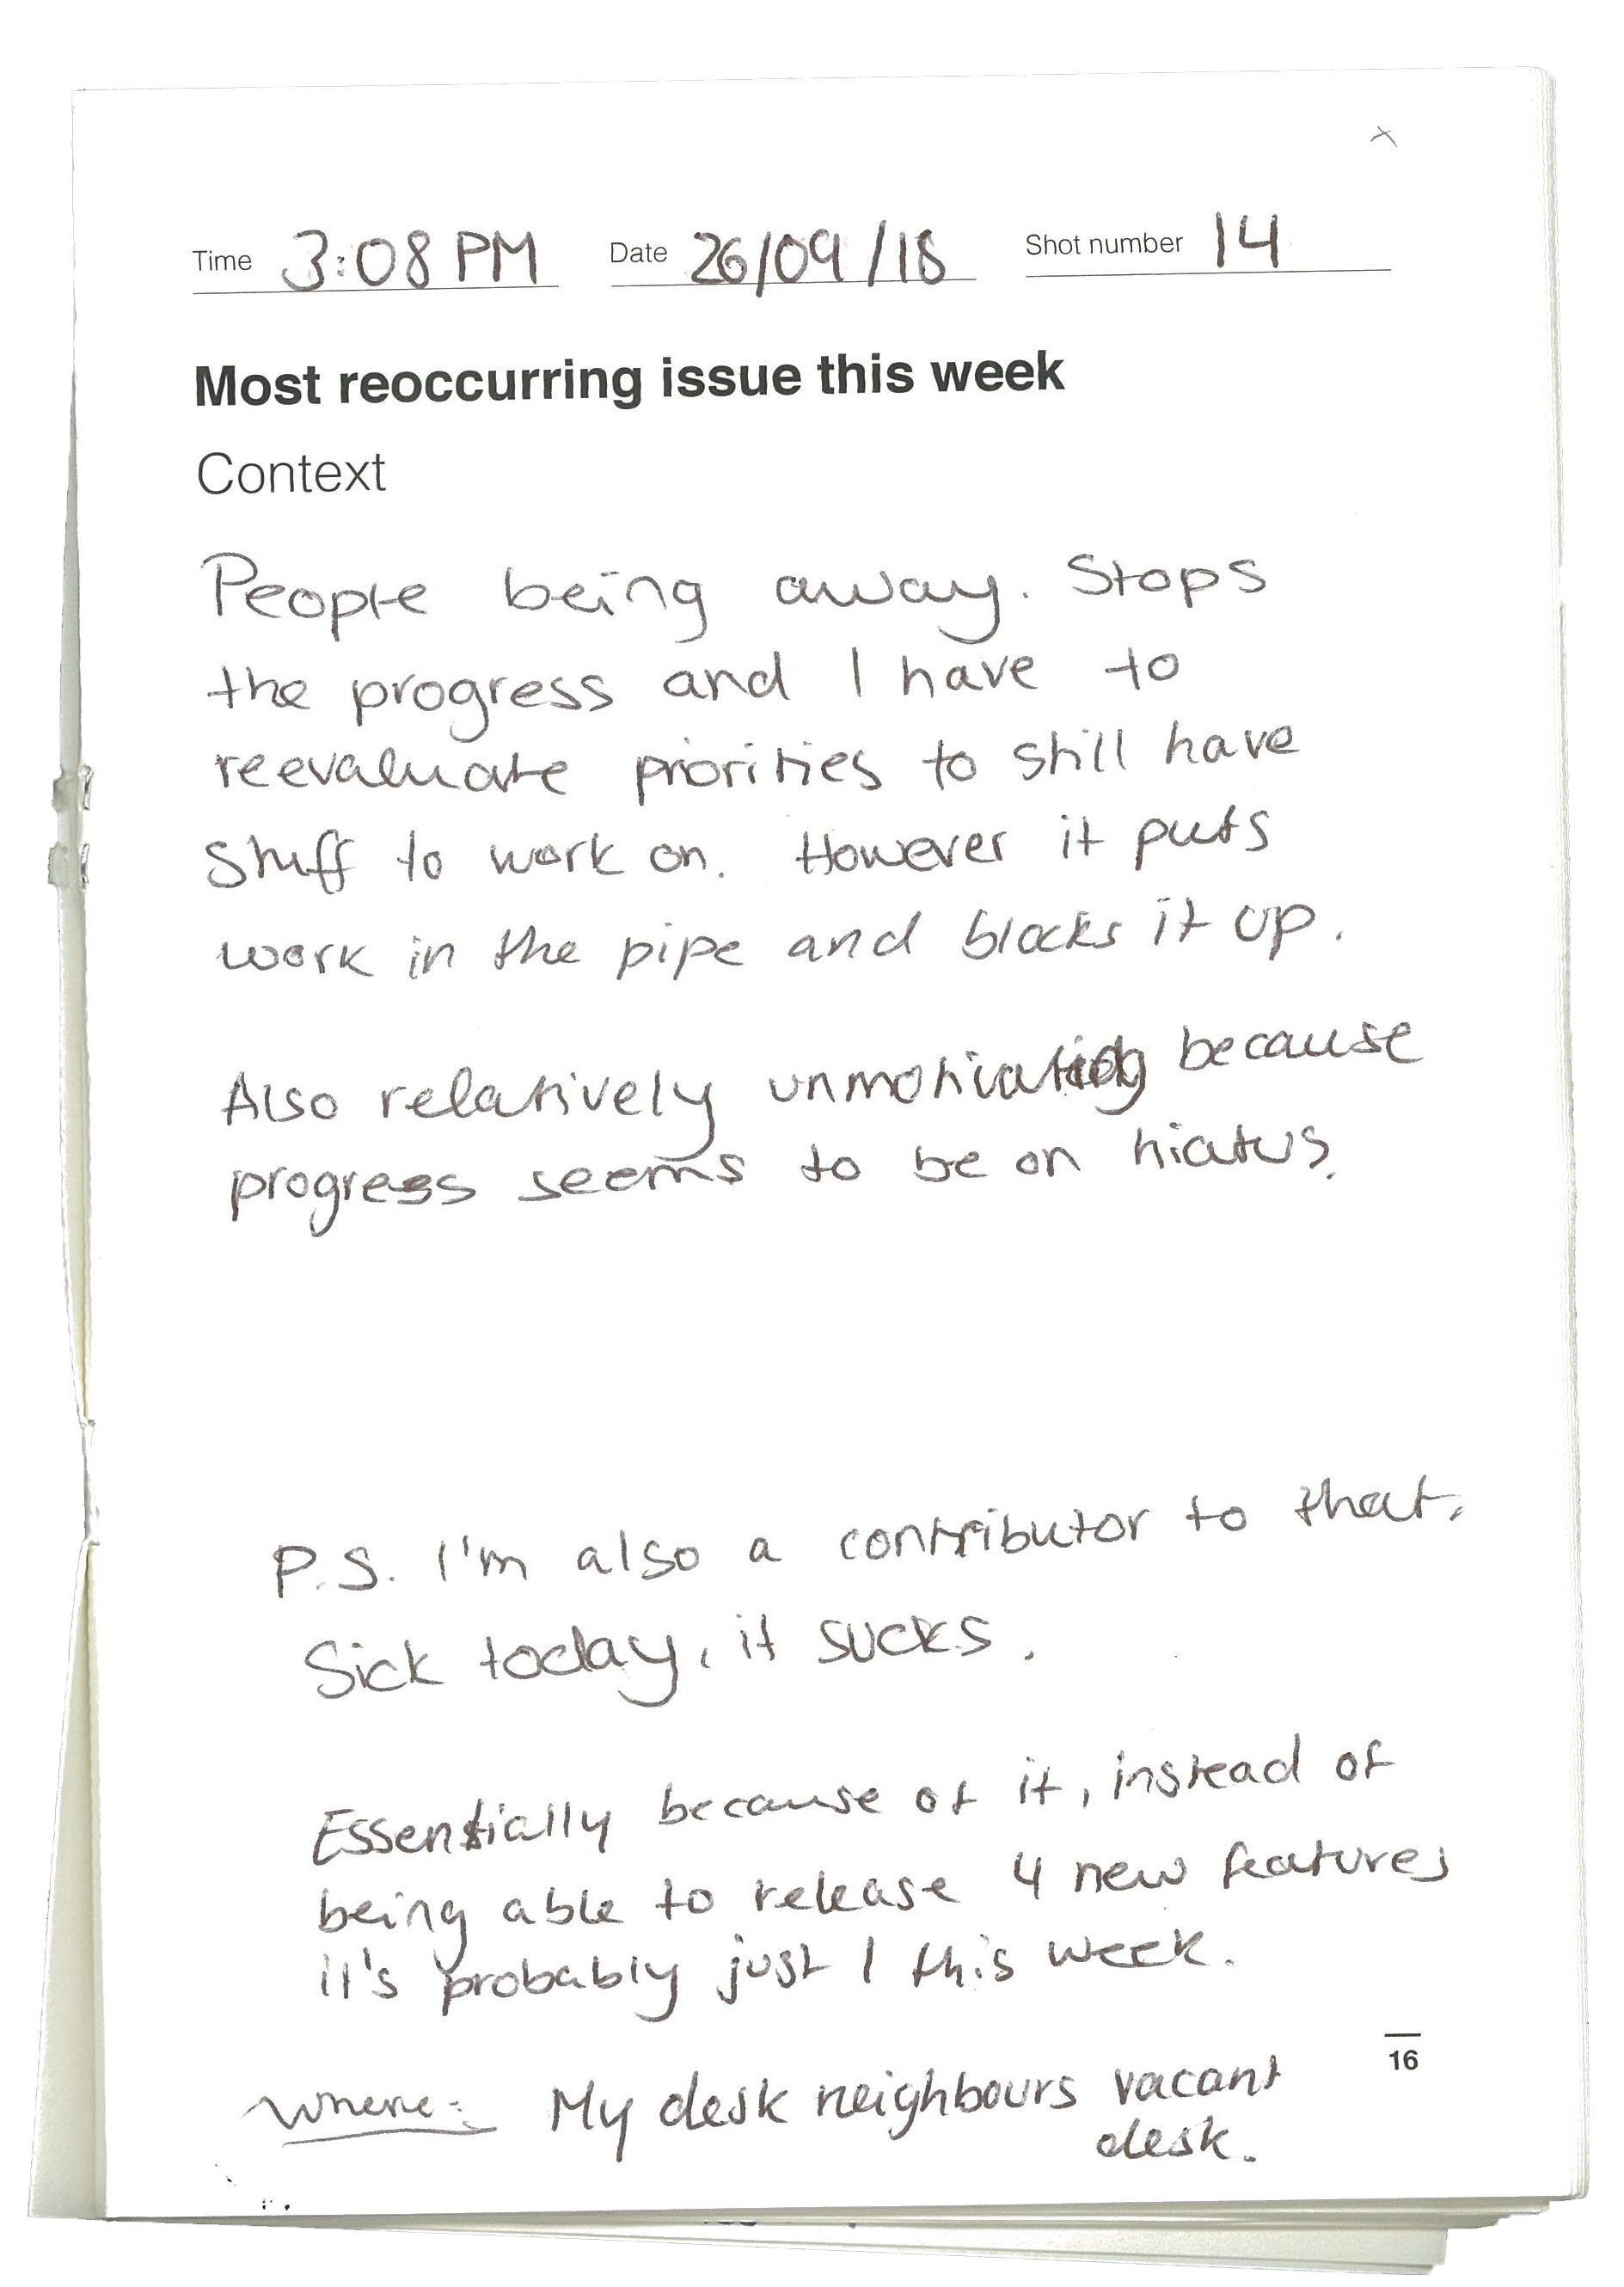 Time 3:08 PM Date 26/09/18 Shot number 14
Most reoccurring issue this week
Context
People being away. Stops
the progress and I have to
reevaluate priorities to still have
stuff to work on. However it puts
work in the pipe and blocks it up.
Also relatively unmotivating because
progress seems to be on hiatus.
P.S. I'm also a contributor to that.
Sick today, it sucks.
Essentially because of it, instead of
being able to release 4 new features
it's probably just 1 this week.
16
Where: My desk neighbours vacant
desk.